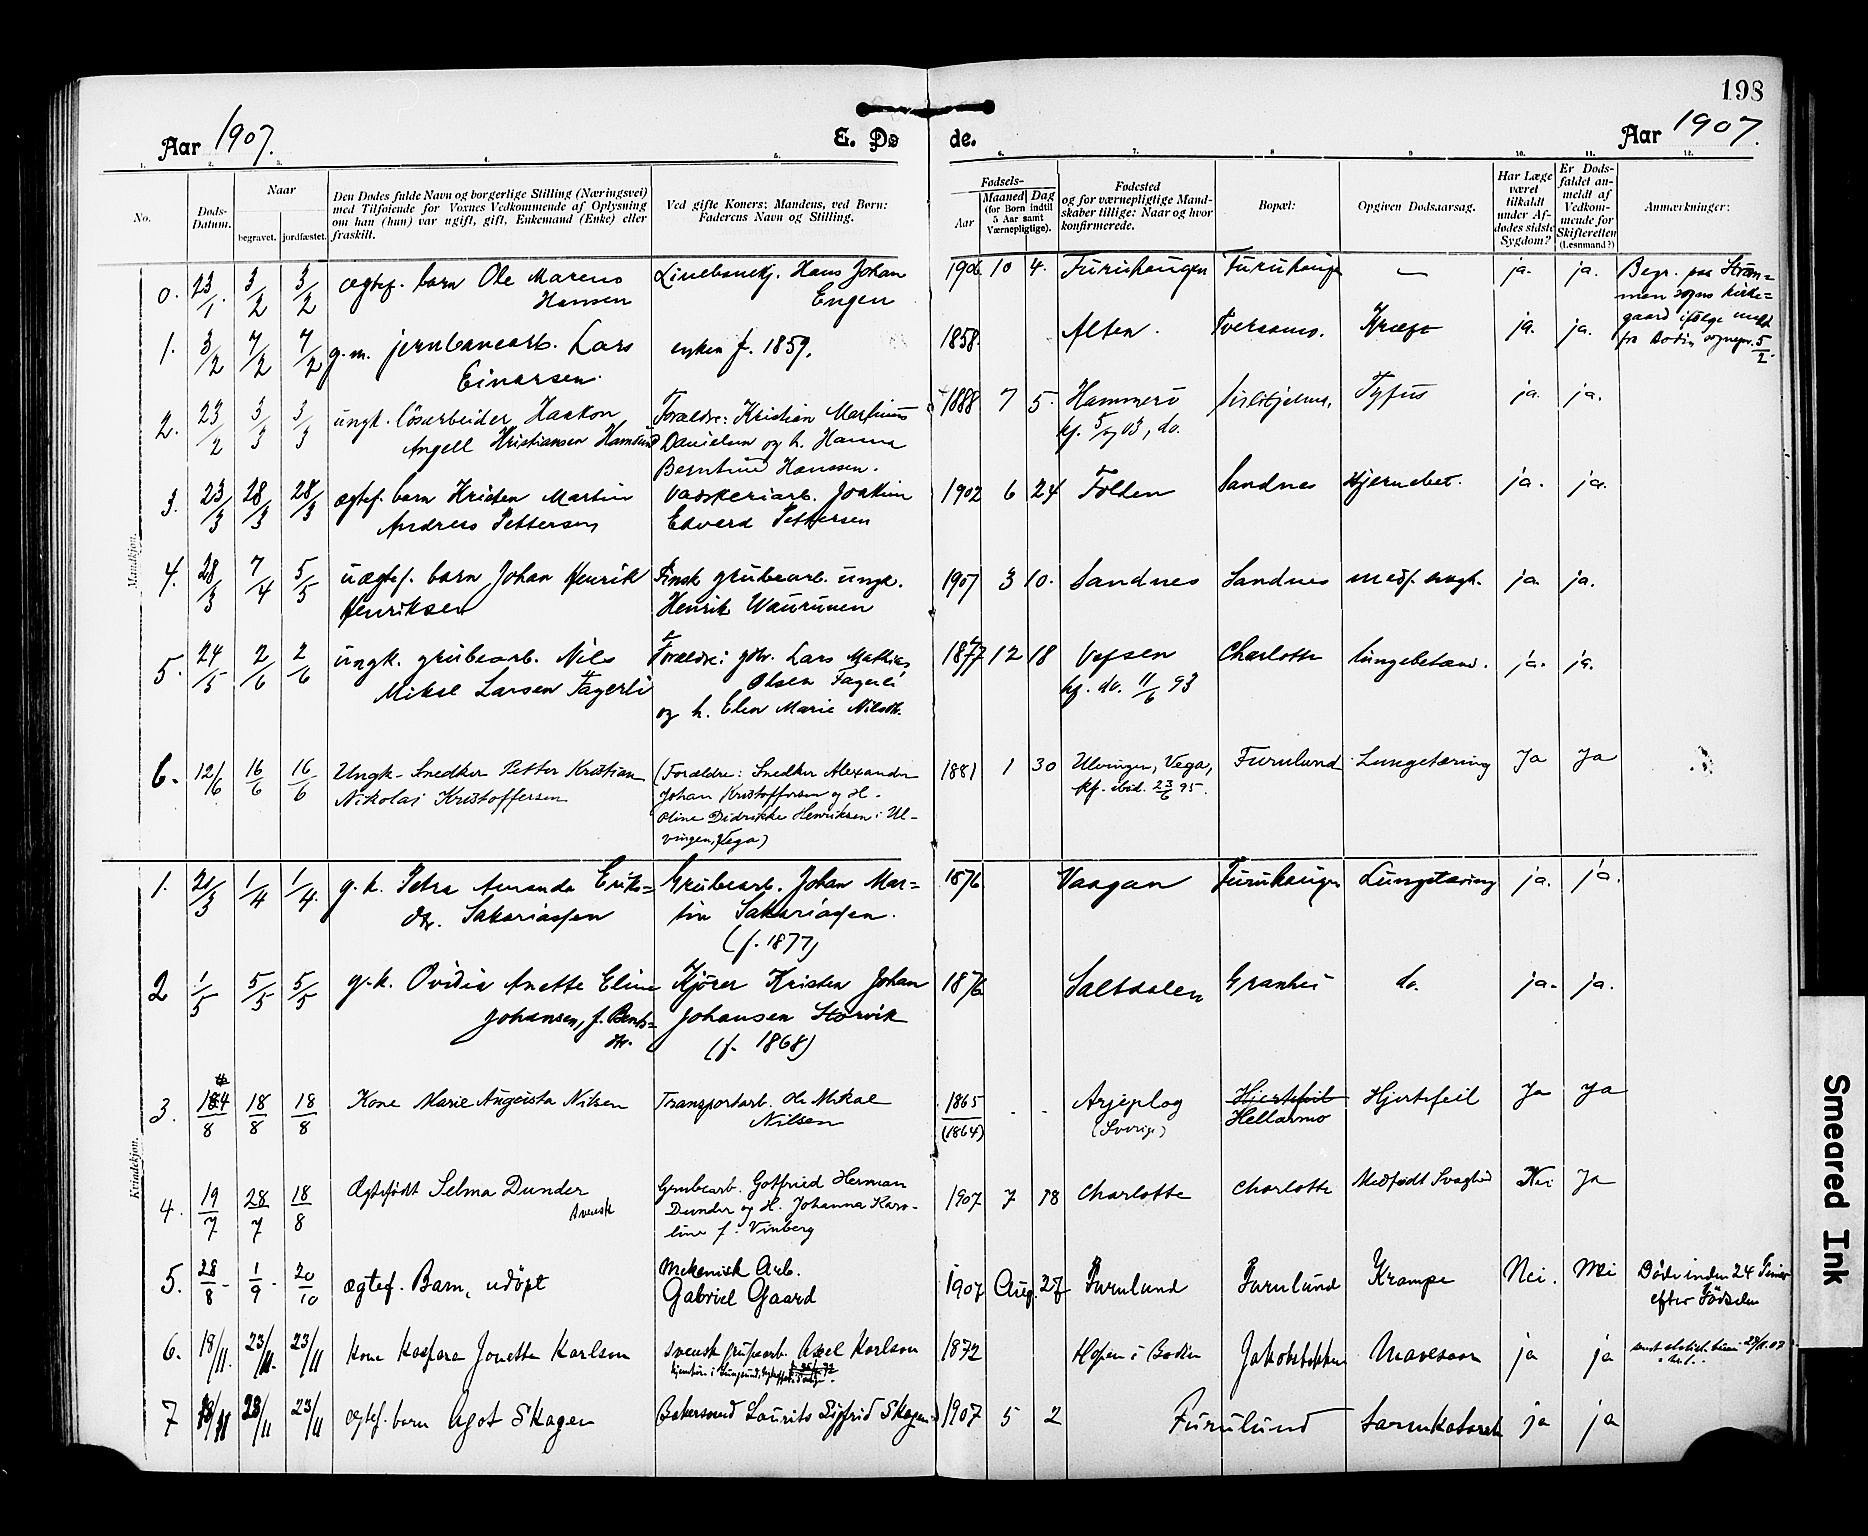 198
Aar 1907.
E. Døde.
Aar 1907.
1. 2. 3. 4. 5. 6. 7. 8 9 10. 11. 12.
No.
Døds-Datum.
Naar
begravet. jordfæstet.
Den Dødes fulde Navn og borgerlige Stilling (Næringsvei)
med Tilføiende for Voxnes Vedkommende af Oplysning
om han (hun) var ugift, gift, Enkemand (Enke) eller
fraskilt.
Ved gifte Koner: Mandens, ved Børn:
Faderens Navn og Stilling.
Fødsels-
Aar
Maaned Dag
(for Børn indtil
5 Aar samt
Værnepligtige).
Fødested
og for værnepligtige Mand-
skaber tillige: Naar og hvor
konfirmerede.
Bopæl:
Opgiven Dødsaarsag.
Har Læge
været
tilkaldt
under Af-
dødes sidste
Sygdom?
Er Døds-
faldet an-
meldt af
Vedkom-
mende for
Skifteretten
(Lensmand?)
Anmærkninger:
Mandkjøn.
0. 23/1. 3/2 3/2 ægtef. barn Ole Marens Linebanekj. Hans Johan 1906 10 4. Furuhaugen Furuhaugen — ja. ja. Begr. paa Strøm-
Hansen Engen men sogns kirke-
gaard ifølge meld
fra Bodin sognepr. 5/2.
1. 3/2 7/2 7/2 g.m. jernbanearb. Lars enken f. 1859. 1858 Alten. Tversaamo. Kræft ja. ja.
Einarsen.
2. 23/2 3/3 3/3 ungk. løsarbeider Haakon Forældre: Kristian Martinus 1888 7 5. Hammerø Tyfus ja. ja.
Angell Kristiansen Hamsund Danielsen og h. Hanna kf. 5/7 03, do.
Berntine Hanssen.
3. 23/3 28/3 28/3 ægtef. barn Kristen Martin Vaskeriarb. Joakim 1902 6 24 Folden Sandnes Hjernebet. ja. ja.
Andreas Pettersen Edvard Pettersen
4. 28/3 7/4 5/5 uægtef. barn Johan Henrik Finsk grubearb. ungk. 1907 3 10. Sandnes Sandnes medf. svagh. ja. ja.
Henriksen Henrik Waurunen
5. 24/5 2/6 2/6 ungk. grubearb. Nils Forældre: gbr. Lars Mathias 1877 12 18 Vefsen Charlotte Lungebetænd. ja. ja.
Mikal Larsen Fagerli Olsen Fagerli kf. do. 11/6 93
og h. Elen Marie Nilsdt.
6. 12/6 16/6 16/6 Ungk. Snedker Petter Kristian (Forældre: Snedker Alexander 1881 1 30 Ulvingen, Vega, Furulund Lungetæring Ja Ja
Nikolai Kristoffersen Johan Kristoffersen og H. kf. ibid. 23/6 95.
Oline Didrikke Henriksen i Ul-
vingen, Vega)
Kvindekjøn.
1. 21/3 1/4 1/4. g.k. Petra Amanda Eriks- Grubearb. Johan Mar- 1876 Vaagan Furuhaugen Lungetæring ja. ja.
dtr. Sakariassen tin Sakariassen.
(f. 1877)
2 1/5 5/5 5/5 g.k. Ovidia Anette Eline Kjører Kristen Johan 1876 Saltdalen Granhei do. ja. ja.
Johansen, f. Bents- Johansen Storvik
dtr. (f. 1868)
3. 14/8 18/8 18/8 Kone Marie Augusta Nilsen Transportarb. Ole Mikal 1865 - - Arjeplog Hjertefeil Hjertefeil Ja Ja
Nilsen (1864) (Sverige) Hellarmo
4. 19/7 28/7 18/8 Ægtefødt Selma Dunder Grubearb. Gotfried Herman 1907 7 18 Charlotte Charlotte Medfødt Svaghed Nei Ja
svensk Dunder og H. Johanna Karo-
line f. Vinberg
5. 28/8 - 1/9 - 20/10 ægtef. Barn, udøpt Mekanisk Arb. 1907 Aug. 27 Furulund Furulund Krampe Nei. Nei Døde inden 24 Timer
Gabriel Gaard efter Fødselen
6. 18/11. 23/11. 23/11 Kone Kaspara Jonette Karlsen svensk grubearb. Axel Karlsen 1872 Hopen i Bodin Jakobsbakken Mavesaar ja ja
7 18/11 23/11 23/11 ægtef. barn Agot Skagen Bakersvend Laurits Sigfrid Skagen 1907 5 2 Furulund ja ja
Smeared Ink